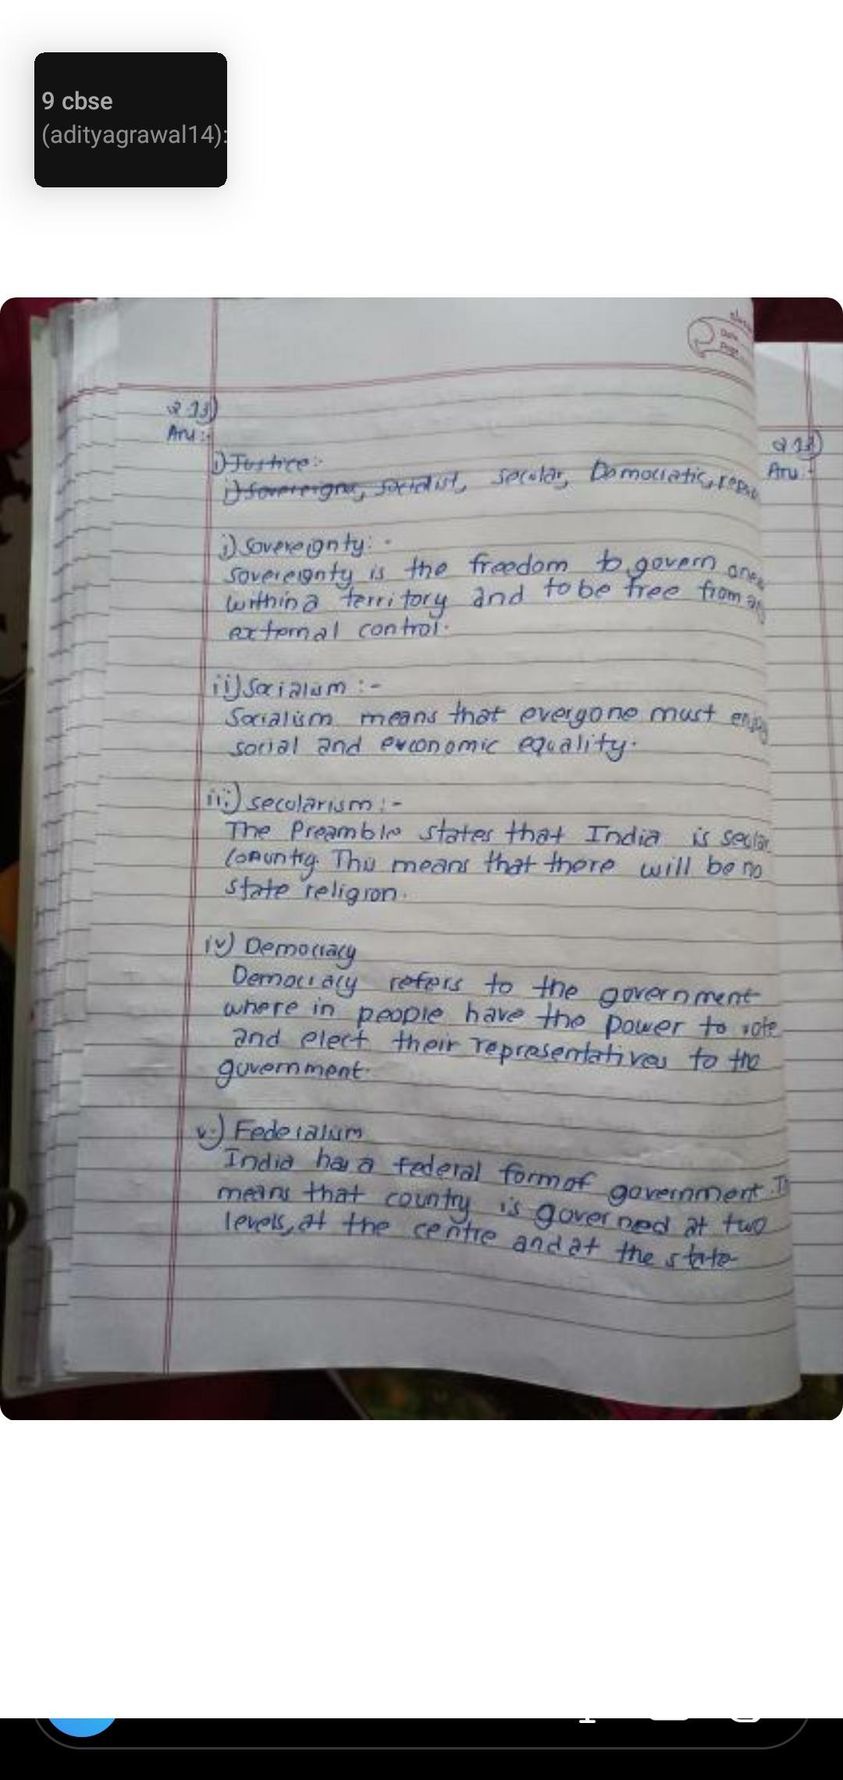 9 cbse
(adityagrawal14):
Date
Page
Q 13)
Ans :-
i) Justice :-
i) Sovereigne, socialist, secular, Democratic, repu
i) Sovereignty: -
Sovereignty is the freedom to govern ones
within a territory and to be free from any
external control.
ii) Socialism :-
Socialism means that everyone must enjoy
social and economic equality.
iii) secularism :-
The Preamble states that India is secular
country. This means that there will be no
state religion.
iv) Democracy
Democracy refers to the government
where in people have the power to vote
and elect their representatives to the
government.
v.) Federalism
India has a federal form of government. It
means that country is governed at two
levels, at the centre and at the state
Ans :-